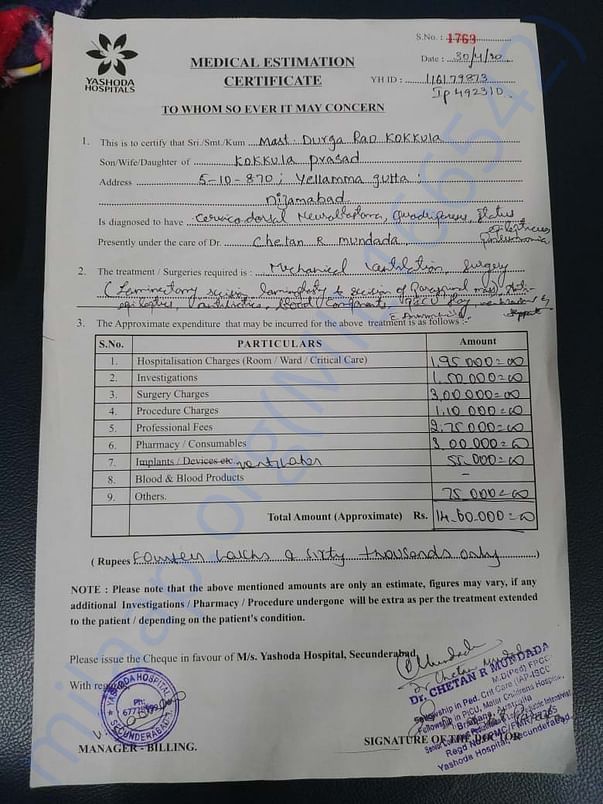 S.No. : 1769
YASHODA
HOSPITALS
MEDICAL ESTIMATION
CERTIFICATE
Date : 30/4/20
YH ID : 116179873
Ip 492310
TO WHOM SO EVER IT MAY CONCERN
1. This is to certify that Sri./Smt./Kum Mast. Durga Rao KOKKULA
Son/Wife/Daughter of KOKKULA prasad
Address 5-10-870 ; Yellamma gutta ;
Nijamabad
Is diagnosed to have Cervico dorsal Neuroblastoma, Quadriparesis, Status
epilepticus
pneumonia
Presently under the care of Dr. Chetan R mundada
2. The treatment / Surgeries required is : Mechanical Ventilation, Surgery
3. The Approximate expenditure that may be incurred for the above treatment is as follows :-
S.No. PARTICULARS Amount
1. Hospitalisation Charges (Room / Ward / Critical Care) 1,95,000=00
2. Investigations 1,50,000=00
3. Surgery Charges 3,00,000=00
4. Procedure Charges 1,10,000=00
5. Professional Fees 2,75,000=00
6. Pharmacy / Consumables 3,00,000=00
7. Implants / Devices etc ventilator 55,000=00
8. Blood & Blood Products -
9. Others. 75,000=00
Total Amount (Approximate) Rs. 14,60,000=00
( Rupees Fourteen Lakhs & Sixty thousands only )
NOTE : Please note that the above mentioned amounts are only an estimate, figures may vary, if any
additional Investigations / Pharmacy / Procedure undergone will be extra as per the treatment extended
to the patient / depending on the patient's condition.
Please issue the Cheque in favour of M/s. Yashoda Hospital, Secunderabad.
With regards,
YASHODA HOSPITAL
Ph:
SECUNDERABAD
MANAGER - BILLING.
Dr. CHETAN R MUNDADA
M.D(Ped) FPCC
Fellowship in Ped. Crit Care (IAP-ISCC)
Fellowship in PICU, Mater Childrens Hospital,
Brisbane, Australia
SIGNATURE OF THE DOCTOR
Yashoda Hospital, Secunderabad.